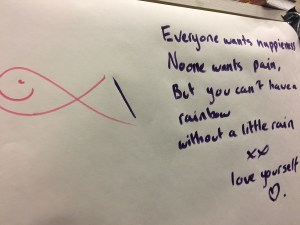 Everyone wants happieness
Noone wants pain,
But you can't have a
rainbow
without a little rain
xx
love yourself